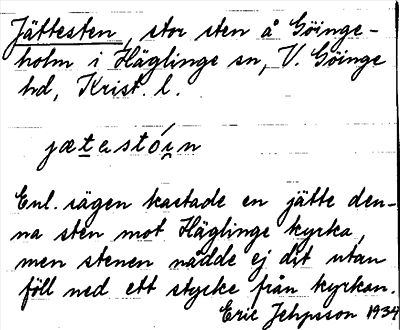 Jättesten, stor sten å Göinge-
holm i Häglinge sn, V. Göinge
hd, Krist. l.
jætastóın
Enl. sägen kastade en jätte den-
na sten mot Häglinge kyrka,
men stenen nådde ej dit utan
föll ned ett stycke från kyrkan.
Eric Jehpsson 1934